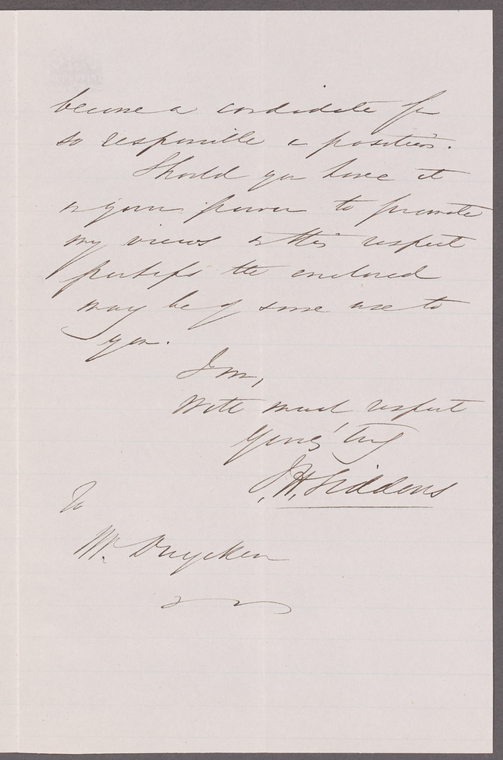 become a candidate for
so responsible a position.
Should you have it
in your power to promote
my views in this respect
perhaps the enclosed
may be of some use to
you.
I am,
With much respect
Yours truly
J. H. Siddons
To
Mr. Duyckin